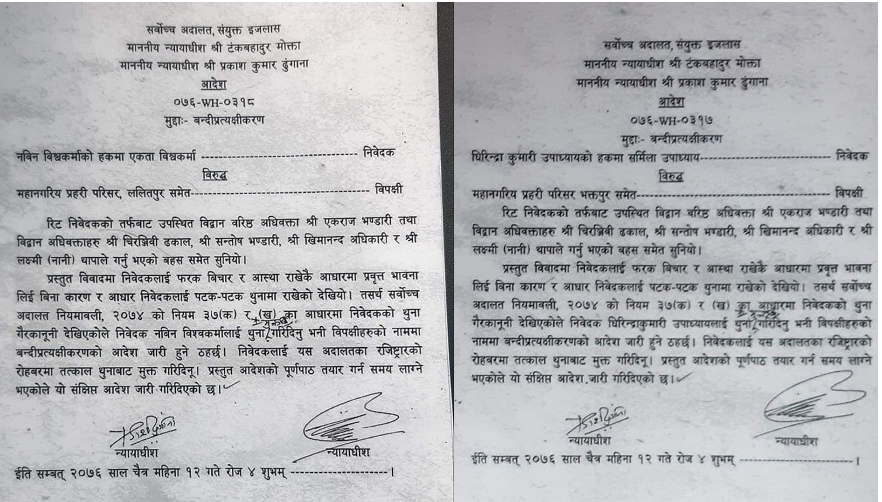 सर्वोच्च अदालत, संयुक्त इजलास
माननीय न्यायाधीश श्री टंकबहादुर मोक्ता
माननीय न्यायाधीश श्री प्रकाश कुमार ढुंगाना
आदेश
०७६-WH-०३१८
मुद्दाः- बन्दीप्रत्यक्षीकरण
नविन विश्वकर्माको हकमा एकता विश्वकर्मा ---------------------------- निवेदक
विरुद्ध
महानगरिय प्रहरी परिसर, ललितपुर समेत---------------------------- विपक्षी
रिट निवेदकको तर्फबाट उपस्थित विद्वान वरिष्ठ अधिवक्ता श्री एकराज भण्डारी तथा
विद्वान अधिवक्ताहरु श्री चिरञ्जिवी ढकाल, श्री सन्तोष भण्डारी, श्री खिमानन्द अधिकारी र श्री
लक्ष्मी (नानी) थापाले गर्नु भएको बहस समेत सुनियो।
प्रस्तुत विवादमा निवेदकलाई फरक बिचार र आस्था राखेकै आधारमा प्रवृत्त भावना
लिई बिना कारण र आधार निवेदकलाई पटक-पटक थुनामा राखेको देखियो। तसर्थ सर्वोच्च
अदालत नियमावली, २०७४ को नियम ३७(क) र (ख) का आधारमा निवेदकको थुना
गैरकानूनी देखिएकोले निवेदक नविन विश्वकर्मालाई थुना गरिदिनु भनी विपक्षीहरुको नाममा
बन्दीप्रत्यक्षीकरणको आदेश जारी हुने ठहर्छ। निवेदकलाई यस अदालतका रजिष्ट्रारको
रोहबरमा तत्काल थुनाबाट मुक्त गरिदिनू। प्रस्तुत आदेशको पूर्णपाठ तयार गर्न समय लाग्ने
भएकोले यो संक्षिप्त आदेश जारी गरिदिएको छ।
न्यायाधीश न्यायाधीश
ईति सम्बत् २०७६ साल चैत्र महिना १२ गते रोज ४ शुभम् ------------------।
सर्वोच्च अदालत, संयुक्त इजलास
माननीय न्यायाधीश श्री टंकबहादुर मोक्ता
माननीय न्यायाधीश श्री प्रकाश कुमार ढुंगाना
आदेश
०७६-WH-०३१७
मुद्दाः- बन्दीप्रत्यक्षीकरण
धिरिन्द्रा कुमारी उपाध्यायको हकमा सर्मिला उपाध्याय---------------------- निवेदक
विरुद्ध
महानगरिय प्रहरी परिसर भक्तपुर समेत---------------------------- विपक्षी
रिट निवेदकको तर्फबाट उपस्थित विद्वान वरिष्ठ अधिवक्ता श्री एकराज भण्डारी तथा
विद्वान अधिवक्ताहरु श्री चिरञ्जिवी ढकाल, श्री सन्तोष भण्डारी, श्री खिमानन्द अधिकारी र श्री
लक्ष्मी (नानी) थापाले गर्नु भएको बहस समेत सुनियो।
प्रस्तुत विवादमा निवेदकलाई फरक बिचार र आस्था राखेकै आधारमा प्रवृत्त भावना
लिई बिना कारण र आधार निवेदकलाई पटक-पटक थुनामा राखेको देखियो। तसर्थ सर्वोच्च
अदालत नियमावली, २०७४ को नियम ३७(क) र (ख) का आधारमा निवेदकको थुना
गैरकानूनी देखिएकोले निवेदक धिरिन्द्राकुमारी उपाध्यायलाई थुना गरिदिनु भनी विपक्षीहरुको
नाममा बन्दीप्रत्यक्षीकरणको आदेश जारी हुने ठहर्छ। निवेदकलाई यस अदालतका रजिष्ट्रारको
रोहबरमा तत्काल थुनाबाट मुक्त गरिदिनू। प्रस्तुत आदेशको पूर्णपाठ तयार गर्न समय लाग्ने
भएकोले यो संक्षिप्त आदेश जारी गरिदिएको छ।
न्यायाधीश न्यायाधीश
ईति सम्बत् २०७६ साल चैत्र महिना १२ गते रोज ४ शुभम् ------------------।